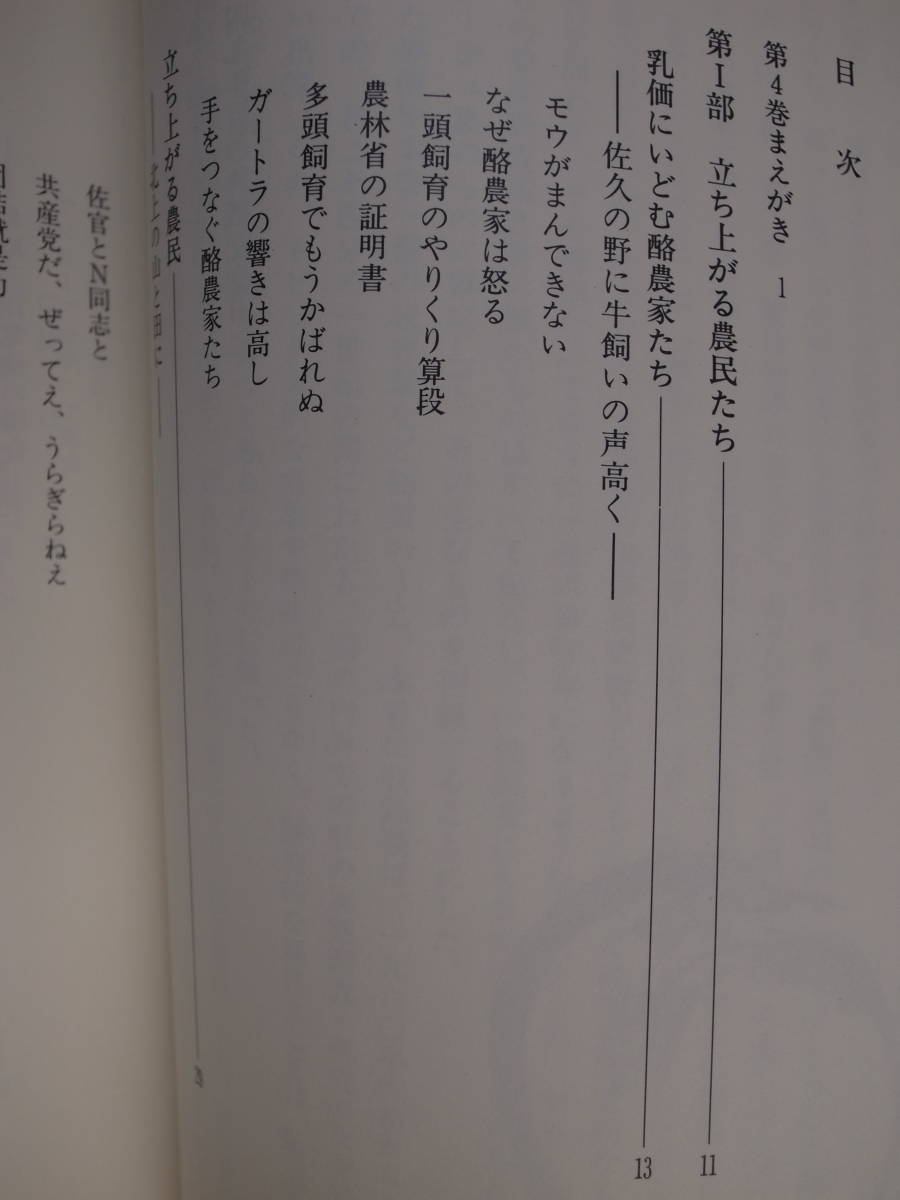 目次
第4巻まえがき 1
第Ⅰ部 立ち上がる農民たち 11
乳価にいどむ酪農家たち 13
――佐久の野に牛飼いの声高く――
モウがまんできない
なぜ酪農家は怒る
一頭飼育のやりくり算段
農林省の証明書
多頭飼育でもうかばれぬ
ガートラの響きは高し
手をつなぐ酪農家たち
立ち上がる農民
――北上の山と田に――
佐官とN同志と
共産党だ、ぜってえ、うらぎらねえ